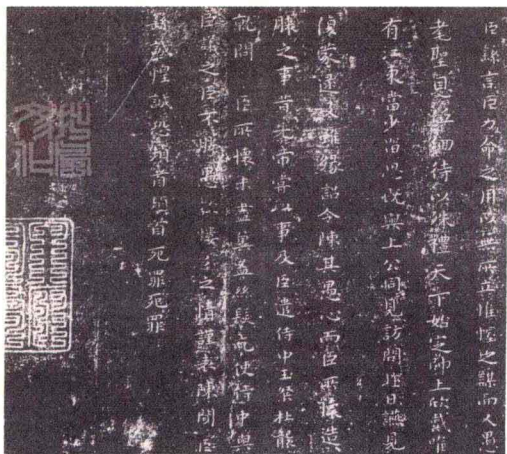 臣繇言臣力命之用以無所立惟幄之謀而又愚
老聖恩細待以殊禮天下始定帥土欣戴唯
有江東當少留思既與上公同見訪問昨日疏見
復蒙逮及雖緣詔令陳其愚心而臣所懷造
膝之事昔先帝嘗以事及臣遣侍中王粲杜襲
就問臣所懷未盡奉益絲髮乞使侍中與
臣議之臣不勝愚慺慺之情謹表陳聞臣
繇誠惶誠恐頓首頓首死罪死罪